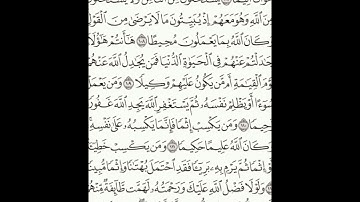 مِنَ ٱللَّهِ وَهُوَ مَعَهُمْ إِذْ يُبَيِّتُونَ مَا لَا يَرْضَىٰ مِنَ ٱلْقَوْلِ
وَكَانَ ٱللَّهُ بِمَا يَعْمَلُونَ مُحِيطًا ١٠٨ هَٰٓأَنتُمْ هَٰٓؤُلَآ
جَٰدَلْتُمْ عَنْهُمْ فِي ٱلْحَيَوٰةِ ٱلدُّنْيَا فَمَن يُجَٰدِلُ ٱللَّهَ عَنْهُمْ
يَوْمَ ٱلْقِيَٰمَةِ أَم مَّن يَكُونُ عَلَيْهِمْ وَكِيلًا ١٠٩ وَمَن يَعْمَلْ
سُوٓءًا أَوْ يَظْلِمْ نَفْسَهُۥ ثُمَّ يَسْتَغْفِرِ ٱللَّهَ يَجِدِ ٱللَّهَ غَفُورًا
رَّحِيمًا ١١٠ وَمَن يَكْسِبْ إِثْمًا فَإِنَّمَا يَكْسِبُهُۥ عَلَىٰ نَفْسِهِۦ
وَكَانَ ٱللَّهُ عَلِيمًا حَكِيمًا ١١١ وَمَن يَكْسِبْ خَطِيٓـَٔ
أَوْ إِثْمًا ثُمَّ يَرْمِ بِهِۦ بَرِيٓـًٔا فَقَدِ ٱحْتَمَلَ بُهْتَٰنًا وَإِثْمًا مُّبِينًا
وَلَوْلَا فَضْلُ ٱللَّهِ عَلَيْكَ وَرَحْمَتُهُۥ لَهَمَّت طَّآئِفَةٌ مِّنْهُمْ